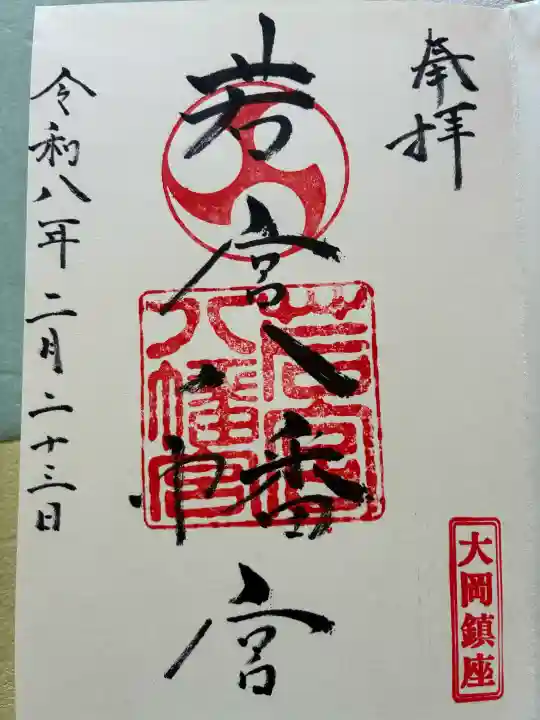 奉拝
大岡鎮座
若宮八幡宮
若宮
八幡宮
令和八年二月二十三日